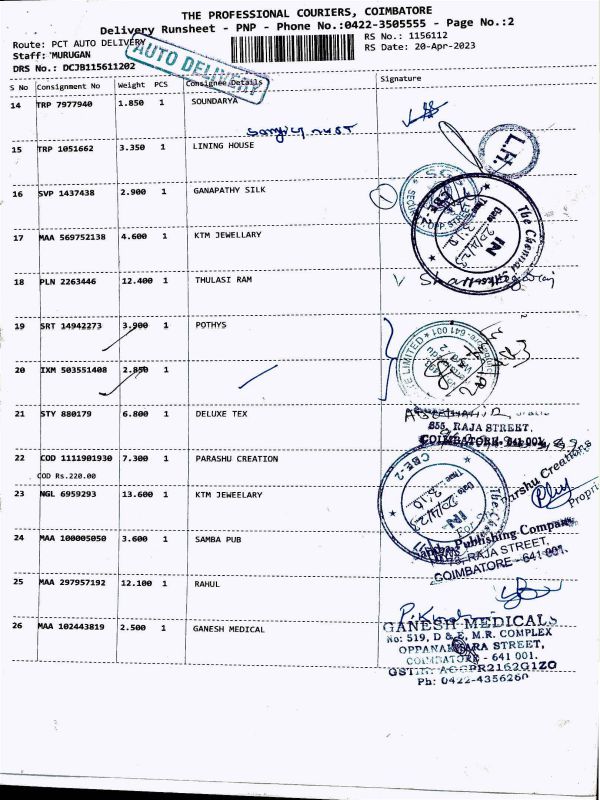 THE PROFESSIONAL COURIERS, COIMBATORE
Delivery Runsheet - PNP - Phone No.:0422-3505555 - Page No.:2
Route: PCT AUTO DELIVERY
RS No.: 1156112
Staff: MURUGAN
RS Date: 20-Apr-2023
DRS No.: DCJB115611202
AUTO DELIVERY
S No Consignment No Weight PCS Consignee Details Signature
14 TRP 7977940 1.850 1 SOUNDARYA
15 TRP 1051662 3.350 1 LINING HOUSE
L.H.
16 SVP 1437438 2.900 1 GANAPATHY SILK
17 MAA 569752138 4.600 1 KTM JEWELLARY
The Chennai
CBE-2
IN
18 PLN 2263446 12.400 1 THULASI RAM
19 SRT 14942273 3.900 1 POTHYS
20 IXM 503551408 2.850 1
LIMITED * 641 001
21 STY 880179 6.800 1 DELUXE TEX
655, RAJA STREET,
COIMBATORE - 641 001
22 COD 1111901930 7.300 1 PARASHU CREATION
COD Rs.220.00
Parshu Creations
23 NGL 6959293 13.600 1 KTM JEWEELARY
CBE-2
IN
24 MAA 100005050 3.600 1 SAMBA PUB
Publishing Company
RAJA STREET,
COIMBATORE - 641 001.
25 MAA 297957192 12.100 1 RAHUL
26 MAA 102443819 2.500 1 GANESH MEDICAL
GANESH MEDICALS
No: 519, D & E, M.R. COMPLEX
STREET,
COIMBATORE - 641 001.
Ph: 0422-4356260